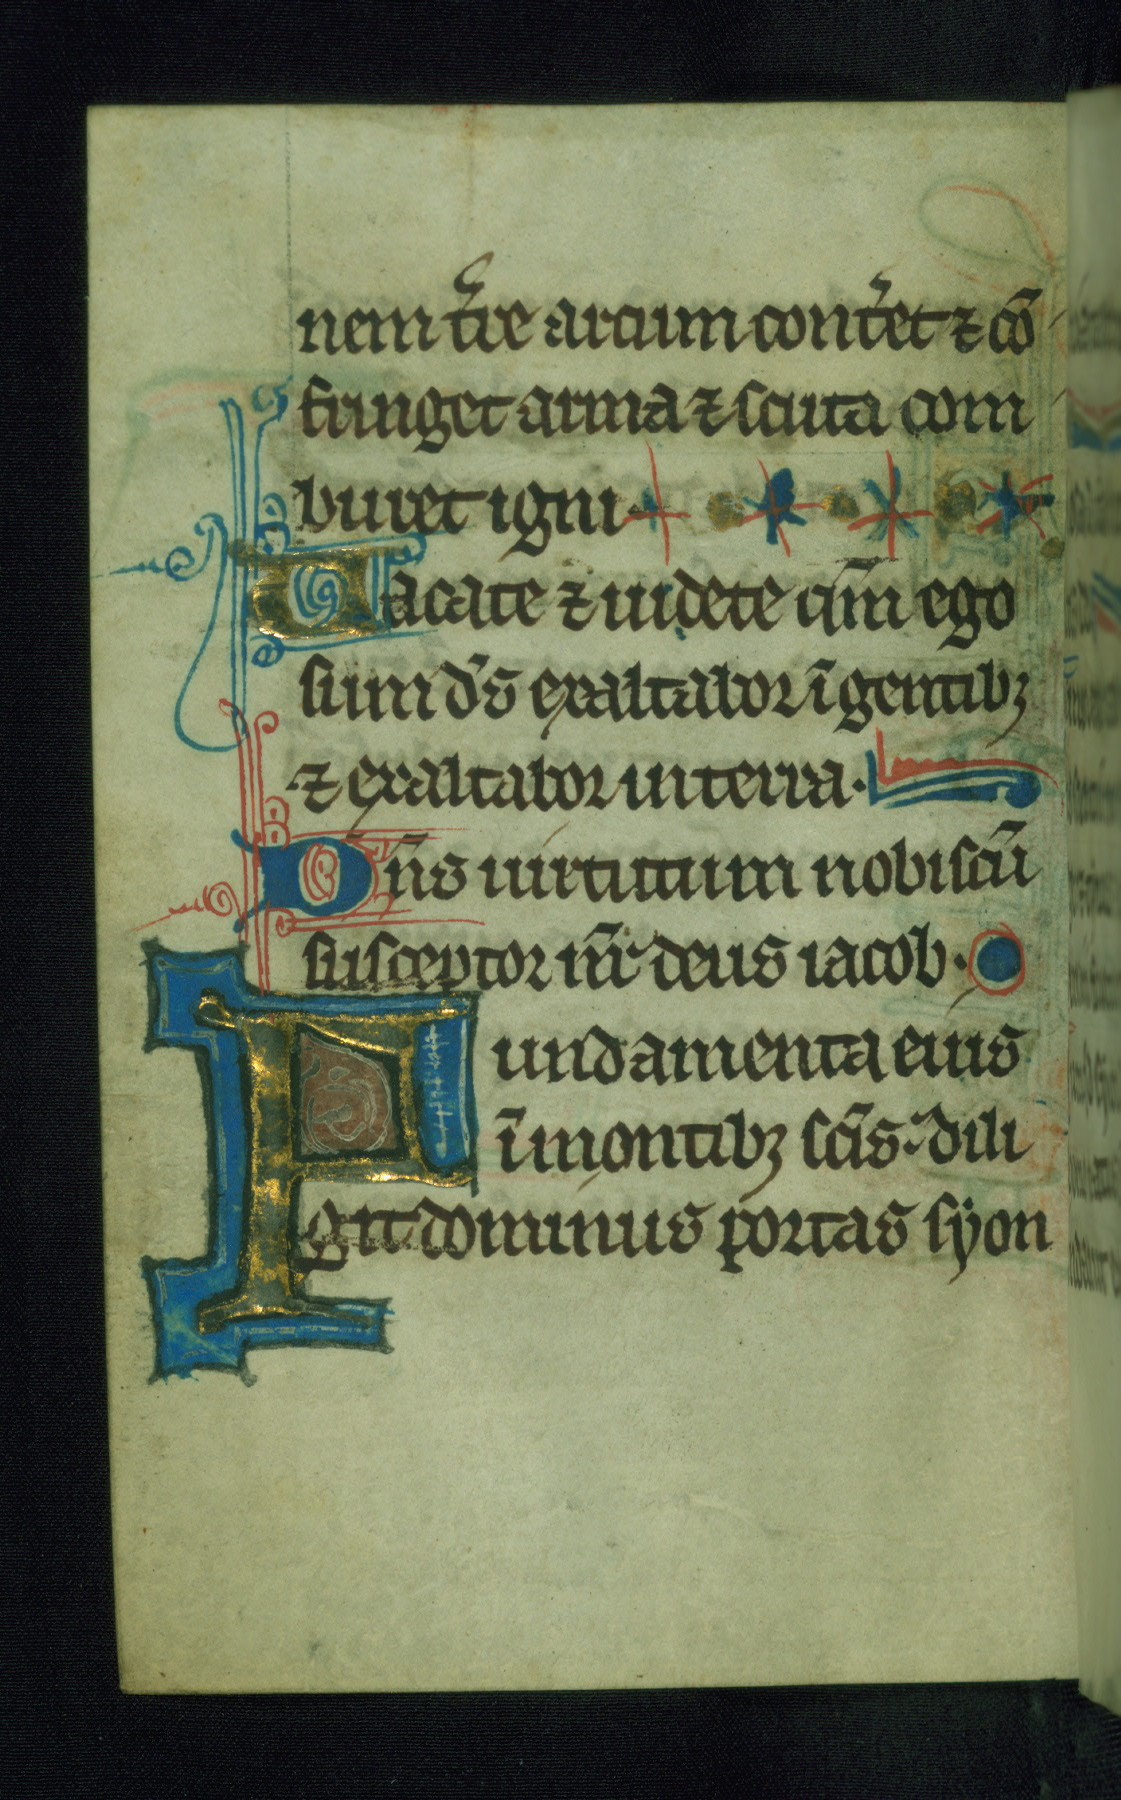 nem t̾re arcum cont̾et ⁊ cō
fringet arma ⁊ scuta com
buret igni
Uacate ⁊ uidete qm̄ ego
sum d̾s exaltabor ī gentibꝫ
⁊ exaltabor in terra.
Dn̄s uirtutum nobiscū
susceptor nr̄ deus iacob.
Fundamenta eius
ī montibꝫ sc̄is. dili
git dominus portas syon